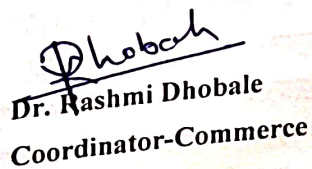 Dhobale
Dr. Rashmi Dhobale
Coordinator-Commerce